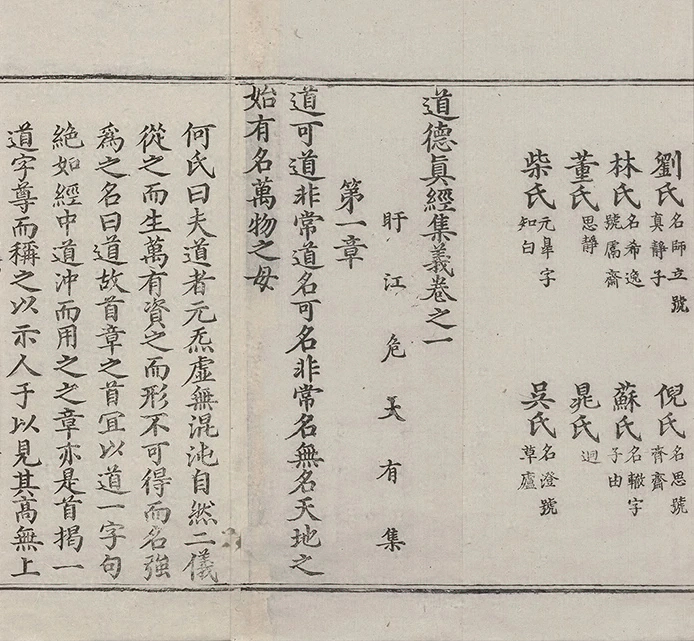 劉氏名師立號真靜子 倪氏名思號齊齋
林氏名希逸號鬳齋 蘇氏名轍字子由
董氏思靜 晁氏迥
柴氏元臯字知白 吳氏名澄號草廬
道德眞經集義卷之一
盱江危大有集
第一章
道可道非常道名可名非常名無名天地之
始有名萬物之母
何氏曰夫道者元炁虛無混沌自然二儀
從之而生萬有資之而形不可得而名強
爲之名曰道故首章之首宜以道一字句
絶如經中道沖而用之之章亦是首揭一
道字尊而稱之以示人于以見其高無上